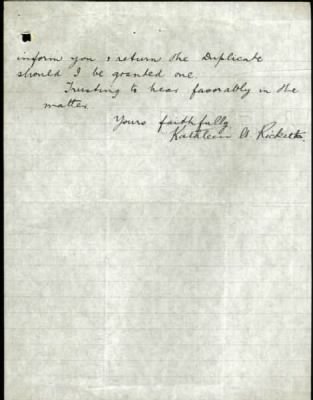 inform you & return the Duplicate
should I be granted one.
Trusting to hear favorably in the
matter
Yours faithfully
Kathleen A Ricketts.